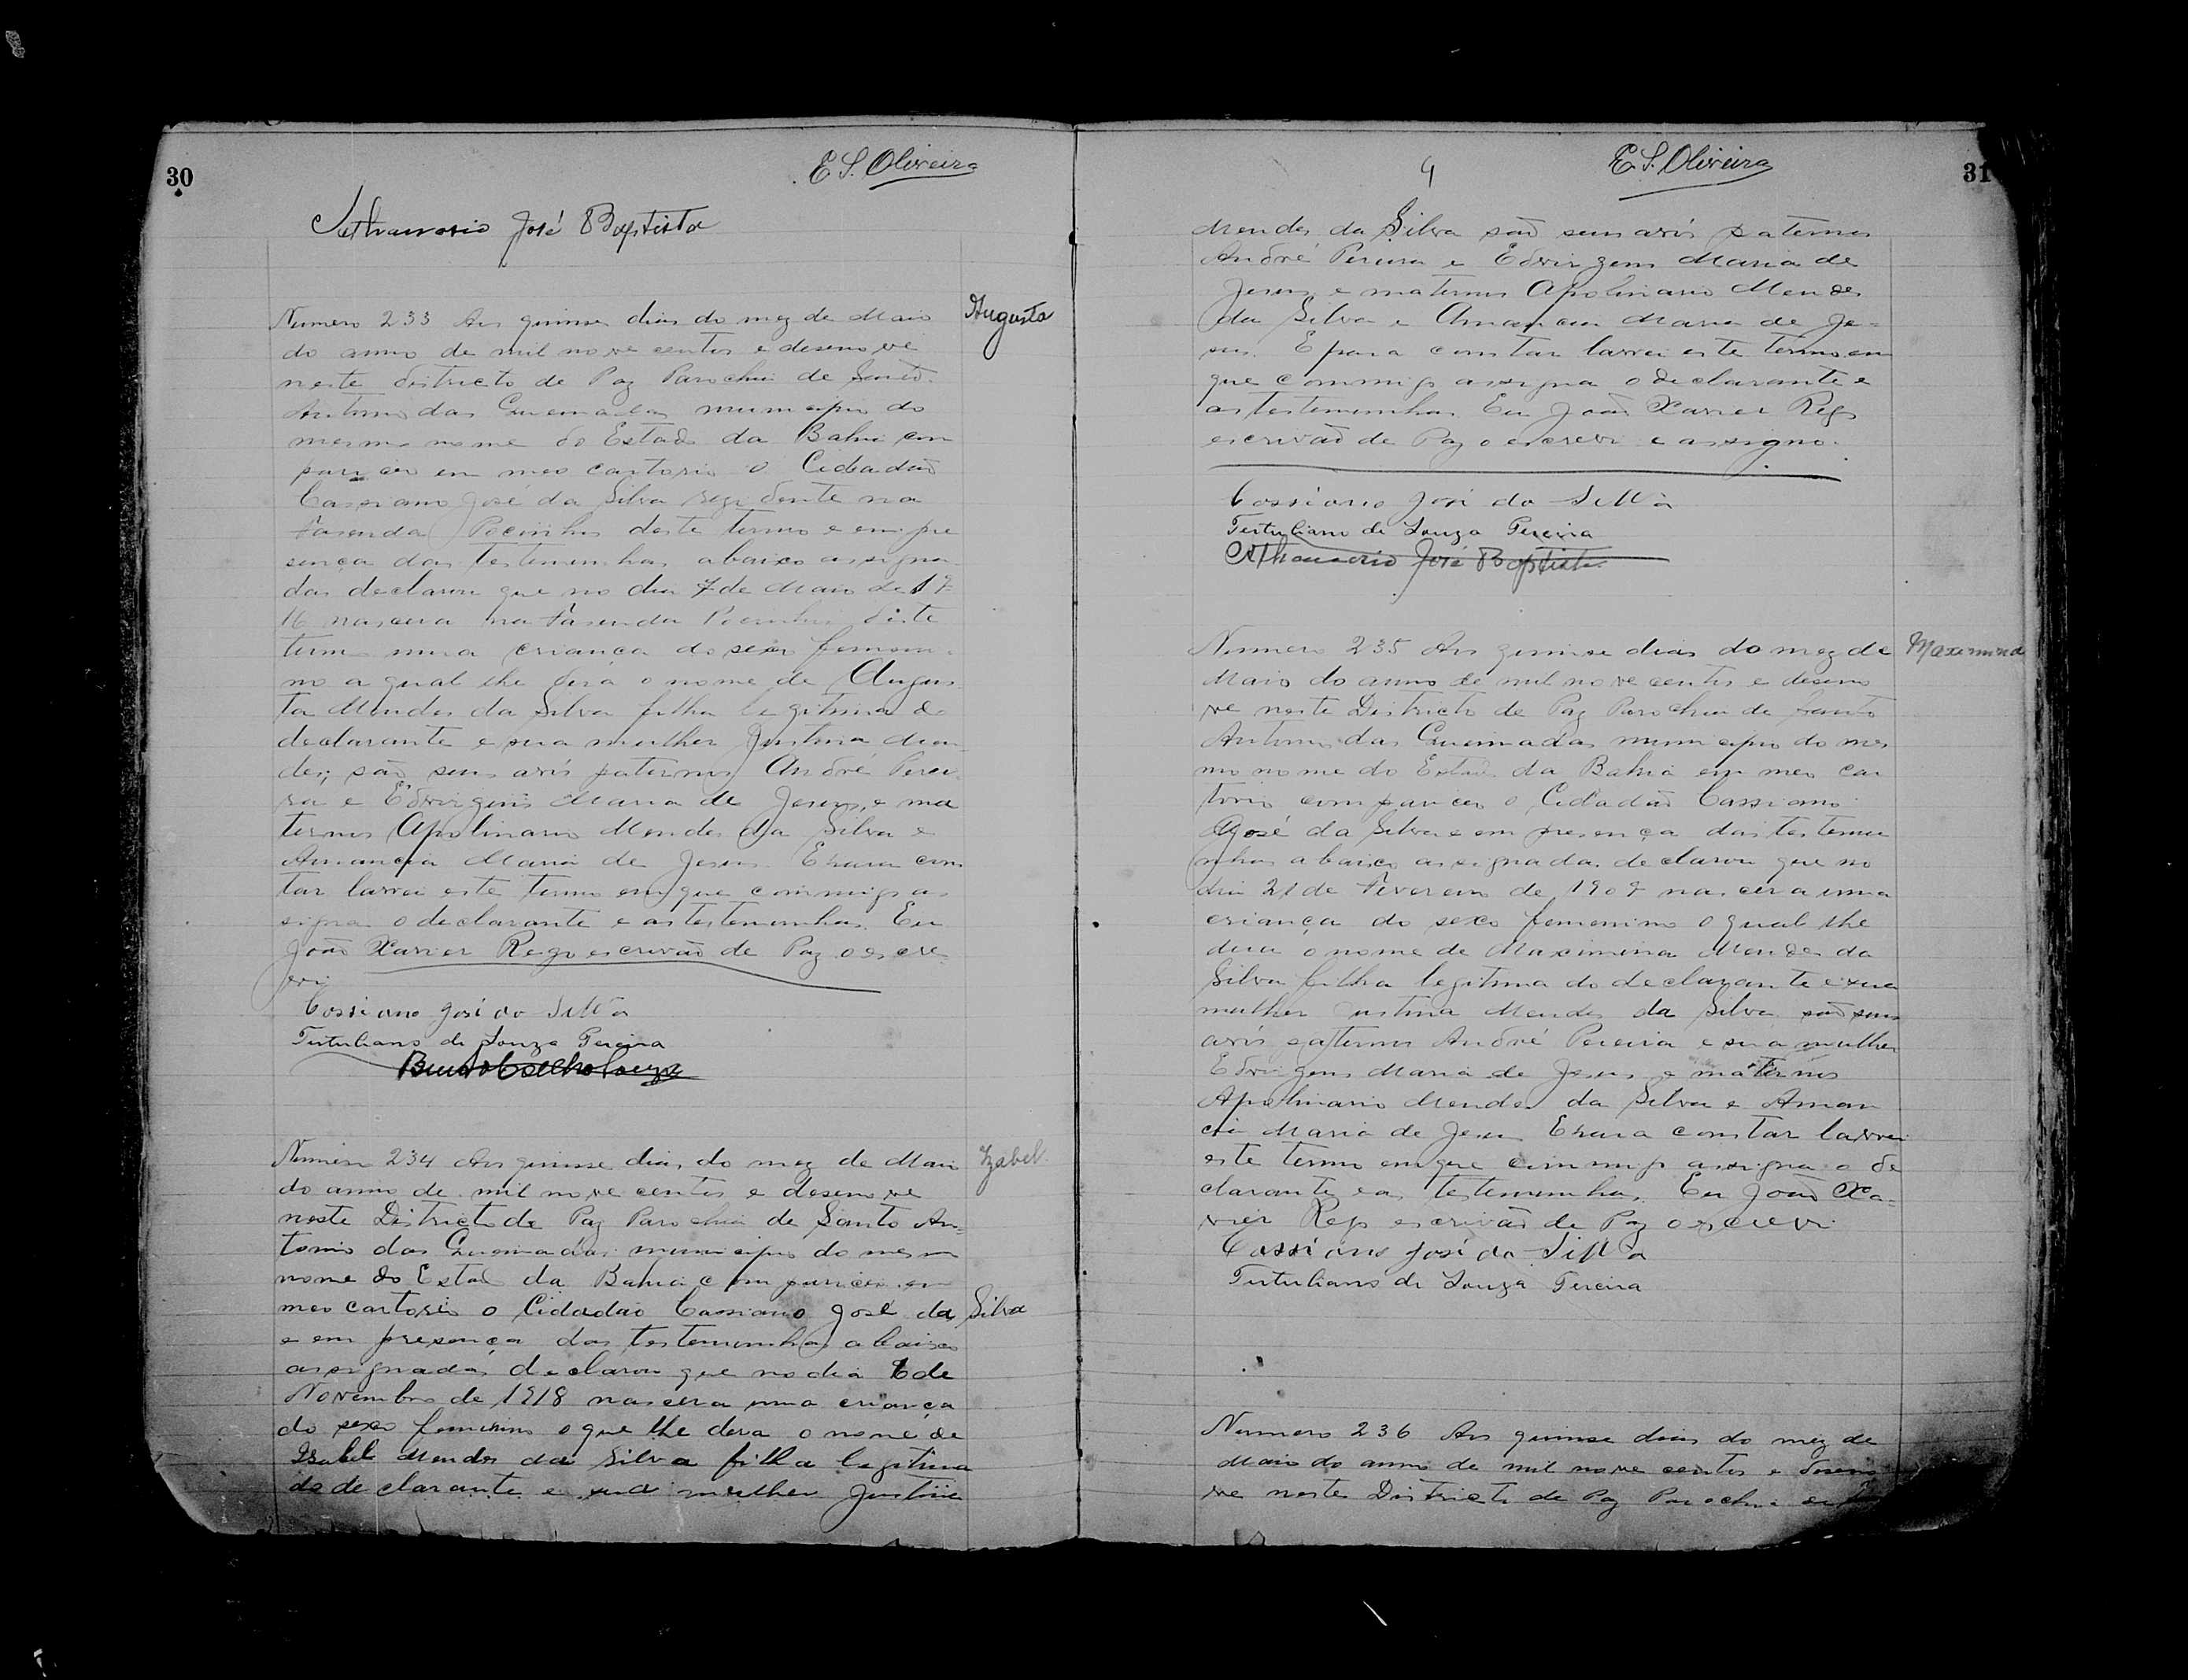 30
E S. Oliveira
Athanasio José Baptista
Augusta
Numero 233 Aos quinse dias do mez de Maio
do anno de mil nove centos e desenove
neste districto de Paz Parochia de Santo
Antonio das Queimadas municipio do
mesmo nome do Estado da Bahia com
pareceo em meo cartorio o Cidadão
Cassiano José da Silva rezidente na
fasenda Pocinhos deste termo e em pre
sença das testemunhas abaixo assigna
das declarou que no dia 7 de Maio de 19
16 nascera na fasenda Pocinhos deste
termo uma criança do sexo femeni
no a qual lhe dera o nome de Augus
ta Mendes da Silva filha legitima do
declarante e sua mulher Justina Men
des; são seus avós paternos André Perei
ra e Edvirgens Maria de Jesus, e ma
ternos Apolinario Mendes da Silva e
Amancia Maria de Jesus. E para cons
tar lavrei este termo em que commigo as
signa o declarante e as testemunhas. Eu
João Xavier Rego escrivão de Paz o escre
vi
Cossiano José da Silva
Tertuliano de Souza Pereira
Izabel
Numero 234 Aos quinse dias do mez de Maio
do anno de mil nove centos e desenove
neste Districto de Paz Parochia de Santo An-
tonio das Queimadas municipio do mesmo
nome do Estado da Bahia compareceo em
meo cartorio o Cidadão Cassiano José da Silva
e em presença das testemunhas abaixo
assignadas declarou que no dia 6 de
Novembro de 1918 nascera uma criança
do sexo femenino o que lhe dera o nome de
Isabel Mendes da Silva filha legitima
do declarante e sua mulher Justina
4
E. S. Oliveira
31
Mendes da Silva são seus avós paternos
André Pereira e Edvirgens Maria de
Jesus e maternos Apolinario Mendes
da Silva e Amancia Maria de Je-
sus. E para constar lavrei este termo em
que commigo assigna o declarante e
as testemunhas. Eu João Xavier Rego
escrivão de Paz o escrevi e assigno.
Cossiano José da Silva
Tertuliano de Souza Pereira
Athanasio José Baptista
Maximina
Numero 235 Aos quinse dias do mez de
Maio do anno de mil nove centos e deseno
ve neste Districto de Paz Parochia de Santo
Antonio das Queimadas municipio do mes
mo nome do Estado da Bahia em meo car
torio compareceo o Cidadão Cassiano
José da Silva e em presença das testemu
nhas abaixo assignadas declarou que no
dia 21 de Fevereiro de 1907 nascera uma
criança do sexo femenino o qual lhe
dera o nome de Maximina Mendes da
Silva filha legitima do declarante e sua
mulher Justina Mendes da Silva são seus
avós paternos André Pereira e sua mulher
Edvirgens Maria de Jesus e maternos
Apolinario Mendes da Silva e Aman
cia Maria de Jesus E para constar lavrei
este termo em que commigo assigna o de
clarante e as testemunhas. Eu João Xa-
vier Rego escrivão de Paz o escrevi
Cassiano José da Silva
Tertuliano de Souza Pereira
Numero 236 Aos quinse dias do mez de
Maio do anno de mil nove centos e deseno
ve neste Districto de Paz Parochia